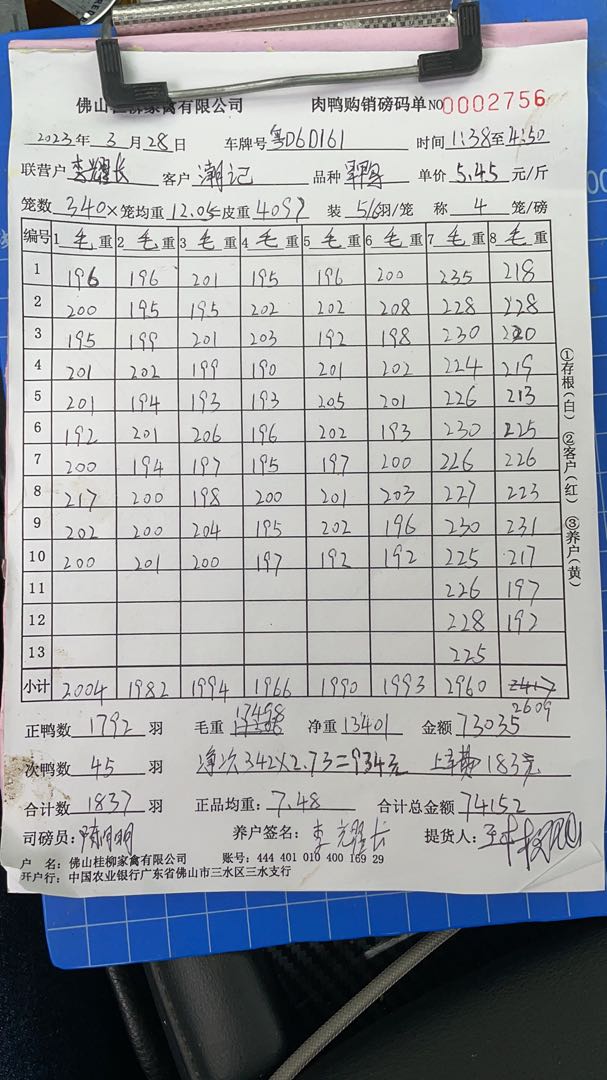 佛山桂柳家禽有限公司 肉鸭购销磅码单 NO 0002756
2023年 3月28日 车牌号 粤D6D161 时间 1:38至4:50
联营户 李耀长 客户 潮记 品种 单价 5.45 元/斤
笼数 340×笼均重 12.05=皮重 4097 装 5/6羽/笼 称 4 笼/磅
编号 1 毛重 2 毛重 3 毛重 4 毛重 5 毛重 6 毛重 7 毛重 8 毛重
1 196 196 201 195 196 200 235 218
2 200 195 195 202 202 208 228 228
3 195 199 201 203 192 198 230 220
4 201 202 199 190 201 202 224 219
5 201 194 193 193 205 201 226 213
6 192 201 206 196 202 193 230 225
7 200 194 197 195 197 200 226 226
8 217 200 198 200 201 203 227 223
9 202 200 204 195 202 196 230 231
10 200 201 200 197 192 192 225 217
11 226 197
12 228 192
13 225
小计 2004 1982 1994 1966 1990 1993 2960 2417
2609
正鸭数 1792 羽 毛重 17498 净重 13401 金额 73035
次鸭数 45 羽 净次342×2.73=934元 183元
合计数 1837 羽 正品均重: 7.48 合计总金额 74152
司磅员: 养户签名: 李耀长 提货人:
户 名: 佛山桂柳家禽有限公司 账号: 444 401 010 400 169 29
开户行: 中国农业银行广东省佛山市三水区三水支行
①存根(白) ②客户(红) ③养户(黄)